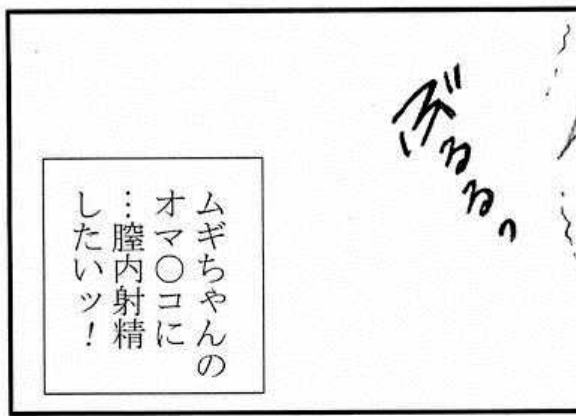 ぶるるっ
ムギちゃんの
オマ○コに
…膣内射精
したいッ!